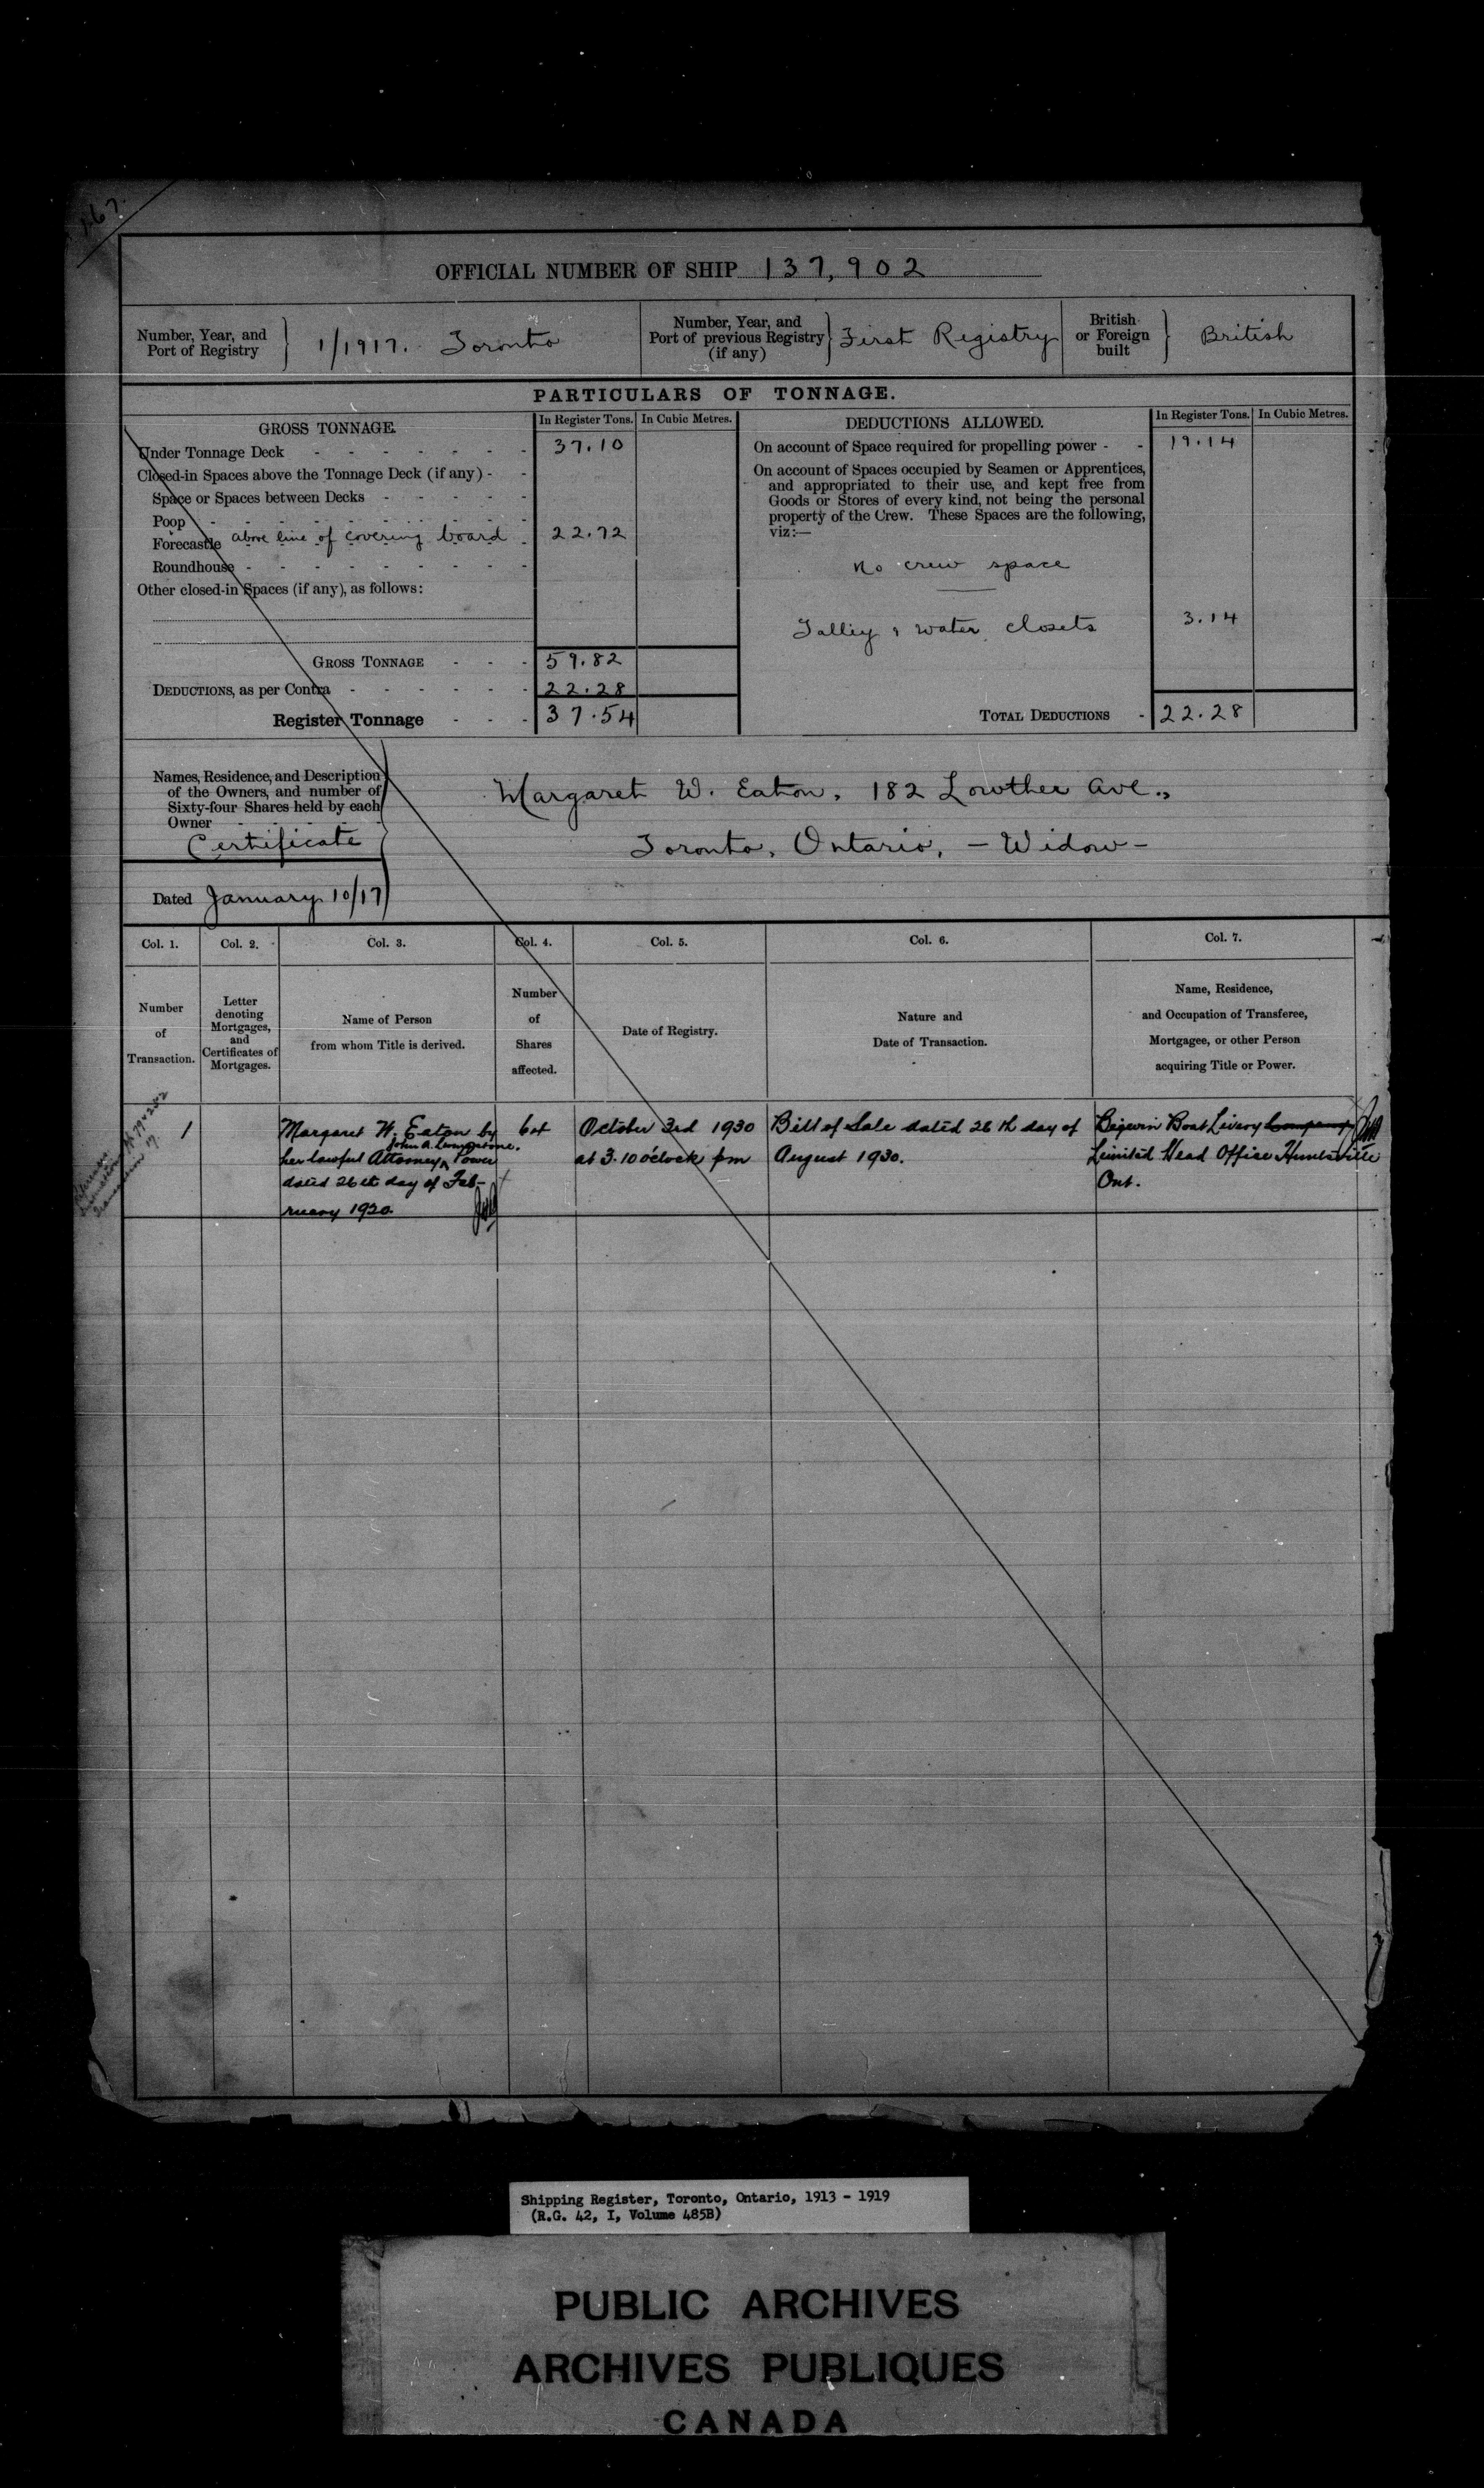 167.
OFFICIAL NUMBER OF SHIP 137,902
Number, Year, and
Port of Registry
1/1917. Toronto
Number, Year, and
Port of previous Registry
(if any)
First Registry
British
or Foreign
built
British
PARTICULARS OF TONNAGE.
GROSS TONNAGE. In Register Tons. In Cubic Metres.
Under Tonnage Deck - - - - - - - 37.10
Closed-in Spaces above the Tonnage Deck (if any) - -
Space or Spaces between Decks - - - - -
Poop - - - - - - - - -
Forecastle above line of covering board - 22.72
Roundhouse - - - - - - - - -
Other closed-in Spaces (if any), as follows:
GROSS TONNAGE - - - 59.82
DEDUCTIONS, as per Contra - - - - - - 22.28
Register Tonnage - - - 37.54
DEDUCTIONS ALLOWED. In Register Tons. In Cubic Metres.
On account of Space required for propelling power - - 19.14
On account of Spaces occupied by Seamen or Apprentices,
and appropriated to their use, and kept free from
Goods or Stores of every kind, not being the personal
property of the Crew. These Spaces are the following,
viz:—
No crew space
Galley & water closets 3.14
TOTAL DEDUCTIONS - 22.28
Names, Residence, and Description
of the Owners, and number of
Sixty-four Shares held by each
Owner - - - -
Certificate
Dated January 10/17
Margaret W. Eaton, 182 Lowther Ave.,
Toronto, Ontario, - Widow -
Col. 1. Col. 2. Col. 3. Col. 4. Col. 5. Col. 6. Col. 7.
Number
of
Transaction.
Letter
denoting
Mortgages,
and
Certificates of
Mortgages.
Name of Person
from whom Title is derived.
Number
of
Shares
affected.
Date of Registry.
Nature and
Date of Transaction.
Name, Residence,
and Occupation of Transferee,
Mortgagee, or other Person
acquiring Title or Power.
1
Margaret W. Eaton by
John A.
her lawful Attorney, Power
dated 26th day of Feb-
ruary 1920
64
October 3rd 1930
at 3.10 o'clock pm
Bill of Sale dated 26th day of
August 1930.
Bigwin Boat Livery Company
Limited Head Office Huntsville
Ont.
Shipping Register, Toronto, Ontario, 1913 - 1919
(R.G. 42, I, Volume 485B)
PUBLIC ARCHIVES
ARCHIVES PUBLIQUES
CANADA